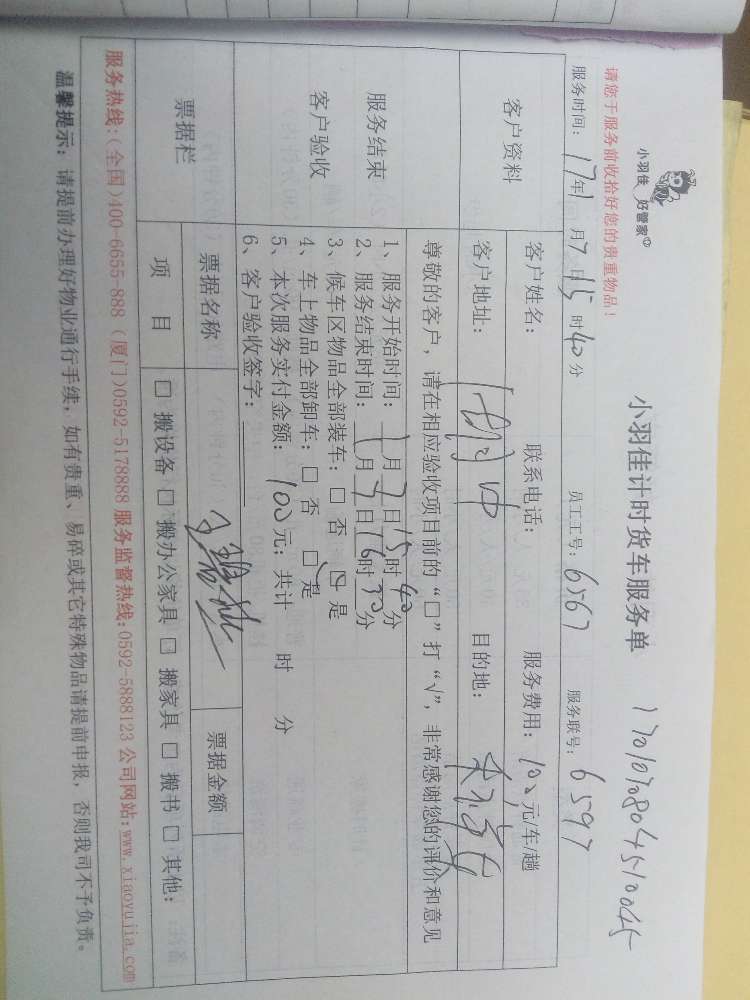 小羽佳 好管家
小羽佳计时货车服务单
请您于服务前收拾好您的贵重物品！
服务时间：17年1月7日15时40分 员工工号：6567 服务联号：6597
客户资料
客户姓名： 联系电话： 服务费用：100元/车/趟
客户地址： 目的地：
服务结束
客户验收
尊敬的客户，请在相应验收项目前的“□”打“√”，非常感谢您的评价和意见
1、服务开始时间：1月7日15时40分
2、服务结束时间：1月7日16时30分
3、候车区物品全部装车：□ 否 □ 是
4、车上物品全部卸车：□ 否 □ 是
5、本次服务实付金额：100元；共计 时 分
6、客户验收签字：
票据栏
票据名称 票据金额
项 目 □ 搬设备 □ 搬办公家具 □ 搬家具 □ 搬书 □ 其他：
服务热线：(全国)400-6655-888 (厦门)0592-5178888 服务监督热线：0592-5888123 公司网站：www.xiaoyujia.com
温馨提示：请提前办理好物业通行手续，如有贵重、易碎或其它特殊物品请提前申报，否则我司不予负责。